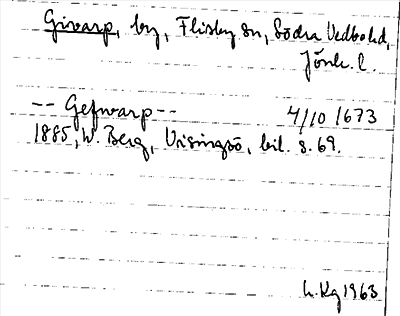 Givarp, by, Flisby sn, Södra Vedbo hd,
Jönk. l.
-- Gefwarp -- 4/10 1673
1885, W. Berg, Visingsö, bil. s. 69.
L. Kg 1963